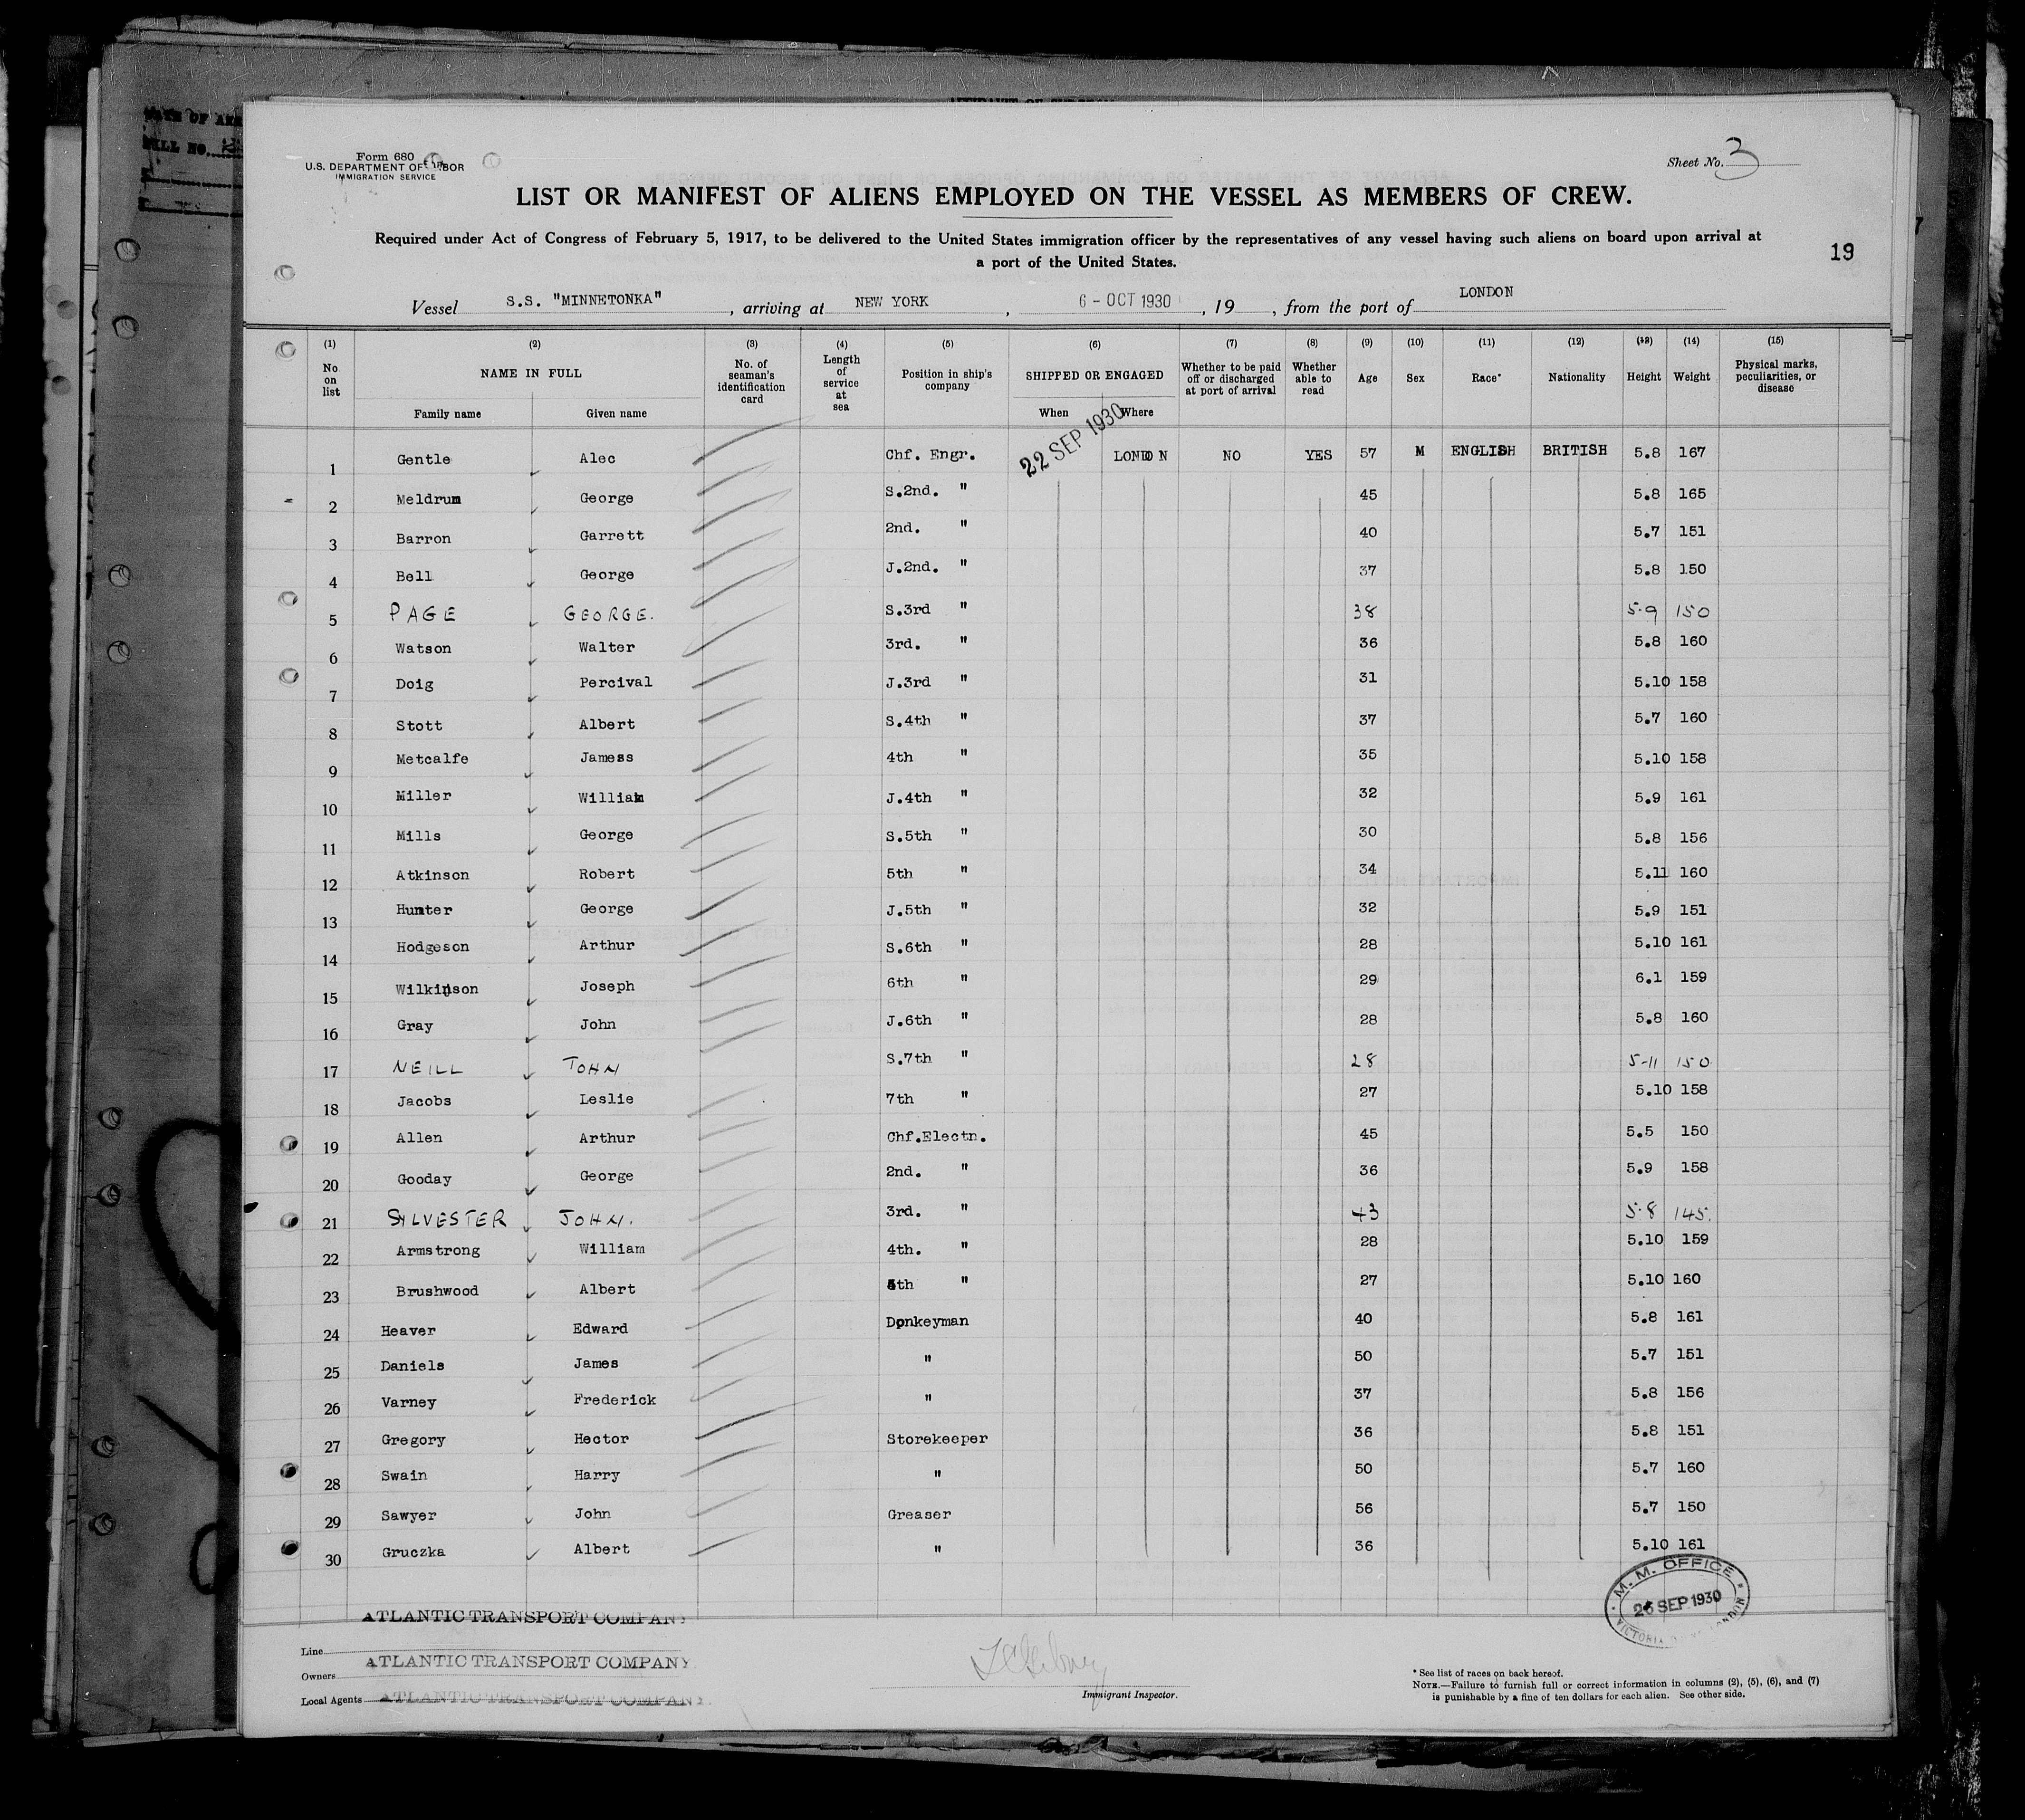 Form 680
U.S. DEPARTMENT OF LABOR
IMMIGRATION SERVICE
Sheet No. 3
LIST OR MANIFEST OF ALIENS EMPLOYED ON THE VESSEL AS MEMBERS OF CREW.
Required under Act of Congress of February 5, 1917, to be delivered to the United States immigration officer by the representatives of any vessel having such aliens on board upon arrival at
a port of the United States.
19
Vessel S.S. "MINNETONKA", arriving at NEW YORK, 6 - OCT 1930, 19 , from the port of LONDON
(1) (2) (3) (4) (5) (6) (7) (8) (9) (10) (11) (12) (13) (14) (15)
No on list NAME IN FULL No. of seaman's identification card Length of service at sea Position in ship's company SHIPPED OR ENGAGED Whether to be paid off or discharged at port of arrival Whether able to read Age Sex Race* Nationality Height Weight Physical marks, peculiarities, or disease
Family name Given name When Where
1 Gentle Alec Chf. Engr. 22 SEP 1930 LONDON NO YES 57 M ENGLISH BRITISH 5.8 167
2 Meldrum George S.2nd. " 45 5.8 165
3 Barron Garrett 2nd. " 40 5.7 151
4 Bell George J.2nd. " 37 5.8 150
5 PAGE GEORGE. S.3rd " 38 5.9 150
6 Watson Walter 3rd. " 36 5.8 160
7 Doig Percival J.3rd " 31 5.10 158
8 Stott Albert S.4th " 37 5.7 160
9 Metcalfe Jamess 4th " 35 5.10 158
10 Miller William J.4th " 32 5.9 161
11 Mills George S.5th " 30 5.8 156
12 Atkinson Robert 5th " 34 5.11 160
13 Hunter George J.5th " 32 5.9 151
14 Hodgeson Arthur S.6th " 28 5.10 161
15 Wilkinson Joseph 6th " 29 6.1 159
16 Gray John J.6th " 28 5.8 160
17 NEILL JOHN S.7th " 28 5-11 150
18 Jacobs Leslie 7th " 27 5.10 158
19 Allen Arthur Chf.Electn. 45 5.5 150
20 Gooday George 2nd. " 36 5.9 158
21 SYLVESTER JOHN. 3rd. " 43 5.8 145.
22 Armstrong William 4th. " 28 5.10 159
23 Brushwood Albert 5th " 27 5.10 160
24 Heaver Edward Donkeyman 40 5.8 161
25 Daniels James " 50 5.7 151
26 Varney Frederick " 37 5.8 156
27 Gregory Hector Storekeeper 36 5.8 151
28 Swain Harry " 50 5.7 160
29 Sawyer John Greaser 56 5.7 150
30 Gruczka Albert " 36 5.10 161
M. M. OFFICE
26 SEP 1930
VICTORIA
ATLANTIC TRANSPORT COMPANY
Line
Owners ATLANTIC TRANSPORT COMPANY
Local Agents ATLANTIC TRANSPORT COMPANY.
Immigrant Inspector.
* See list of races on back hereof.
NOTE.—Failure to furnish full or correct information in columns (2), (5), (6), and (7)
is punishable by a fine of ten dollars for each alien. See other side.